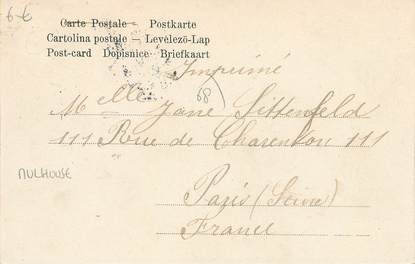 6-6
Carte Postale – Postkarte
Cartolina postale – Levelező-Lap
Post-card Dopisnice Briefkaart
Imprimé
68
Melle Jane Sittenfeld
111 Rue de Charenton 111
MULHOUSE
Paris (Seine)
France